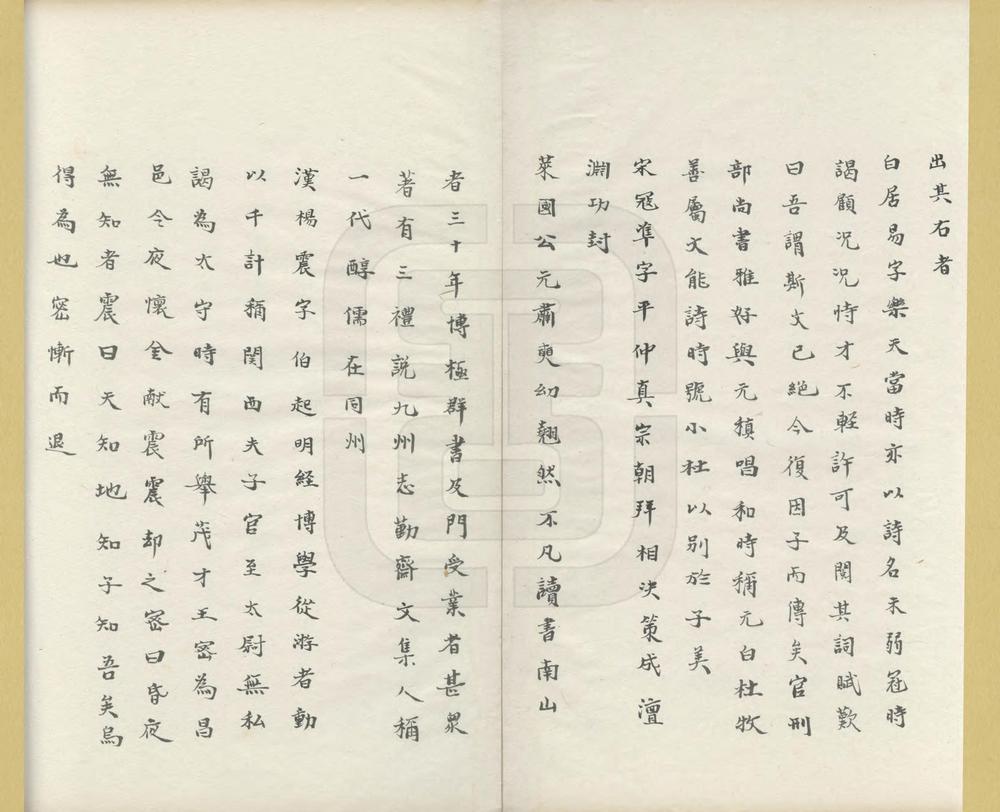 出其右者
白居易字樂天當時亦以詩名未弱冠時
謁顧况况恃才不輕許可及閱其詞賦歎
曰吾謂斯文已絕今復因子而傳矣官刑
部尚書雅好與元稹唱和時稱元白杜牧
善屬文能詩時號小杜以别於子美
宋寇準字平仲真宗朝拜相決策成澶
淵功封
萊國公元蕭㪺幼翹然不凡讀書南山
者三十年博極群書及門受業者甚衆
著有三禮說九州志勤齋文集人稱
一代醇儒在同州
漢楊震字伯起明經博學從游者動
以千計稱関西夫子官至太尉無私
謁為太守時有所舉茂才王密為昌
邑令夜懷金献震震却之密曰昏夜
無知者震曰天知地知子知吾矣烏
得為也密慚而退